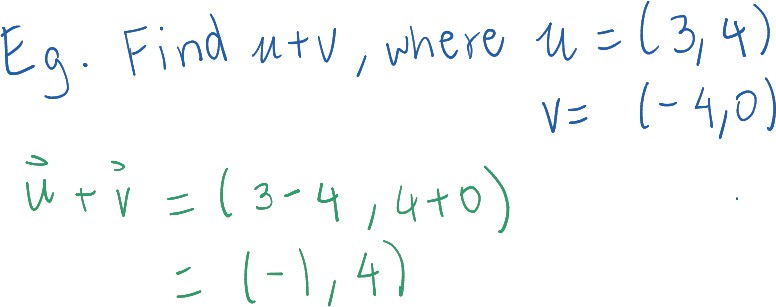 Eg. Find u+v, where u = (3, 4)
v = (-4,0)
u⃗ + v⃗ = (3-4, 4+0)
= (-1, 4)